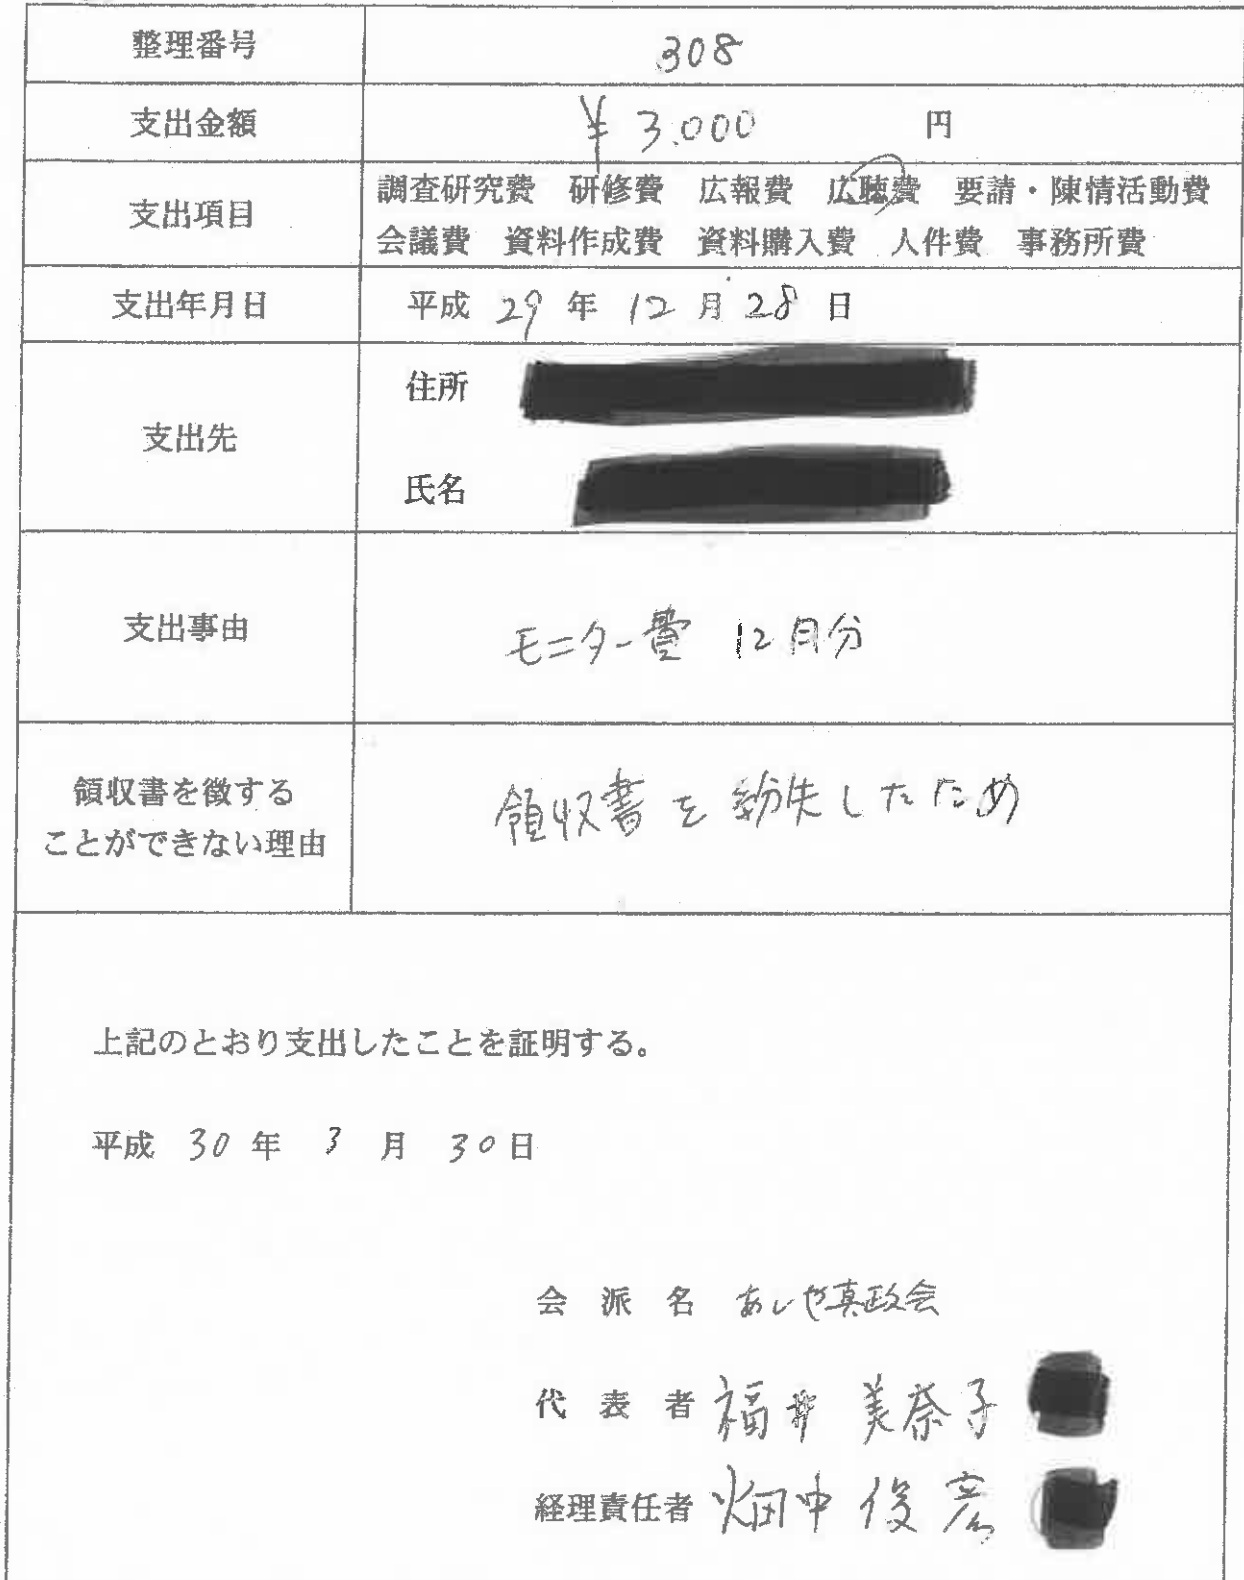 整理番号 308
支出金額 ¥3.000 円
支出項目 調査研究費 研修費 広報費 広聴費 要請・陳情活動費
会議費 資料作成費 資料購入費 人件費 事務所費
支出年月日 平成 29 年 12 月 28 日
支出先 住所
氏名
支出事由 モニター費 12月分
領収書を徴する
ことができない理由 領収書を紛失したため
上記のとおり支出したことを証明する。
平成 30 年 3 月 30 日
会派名 あしや真政会
代表者 福井 美奈子
経理責任者 畑中 俊彦